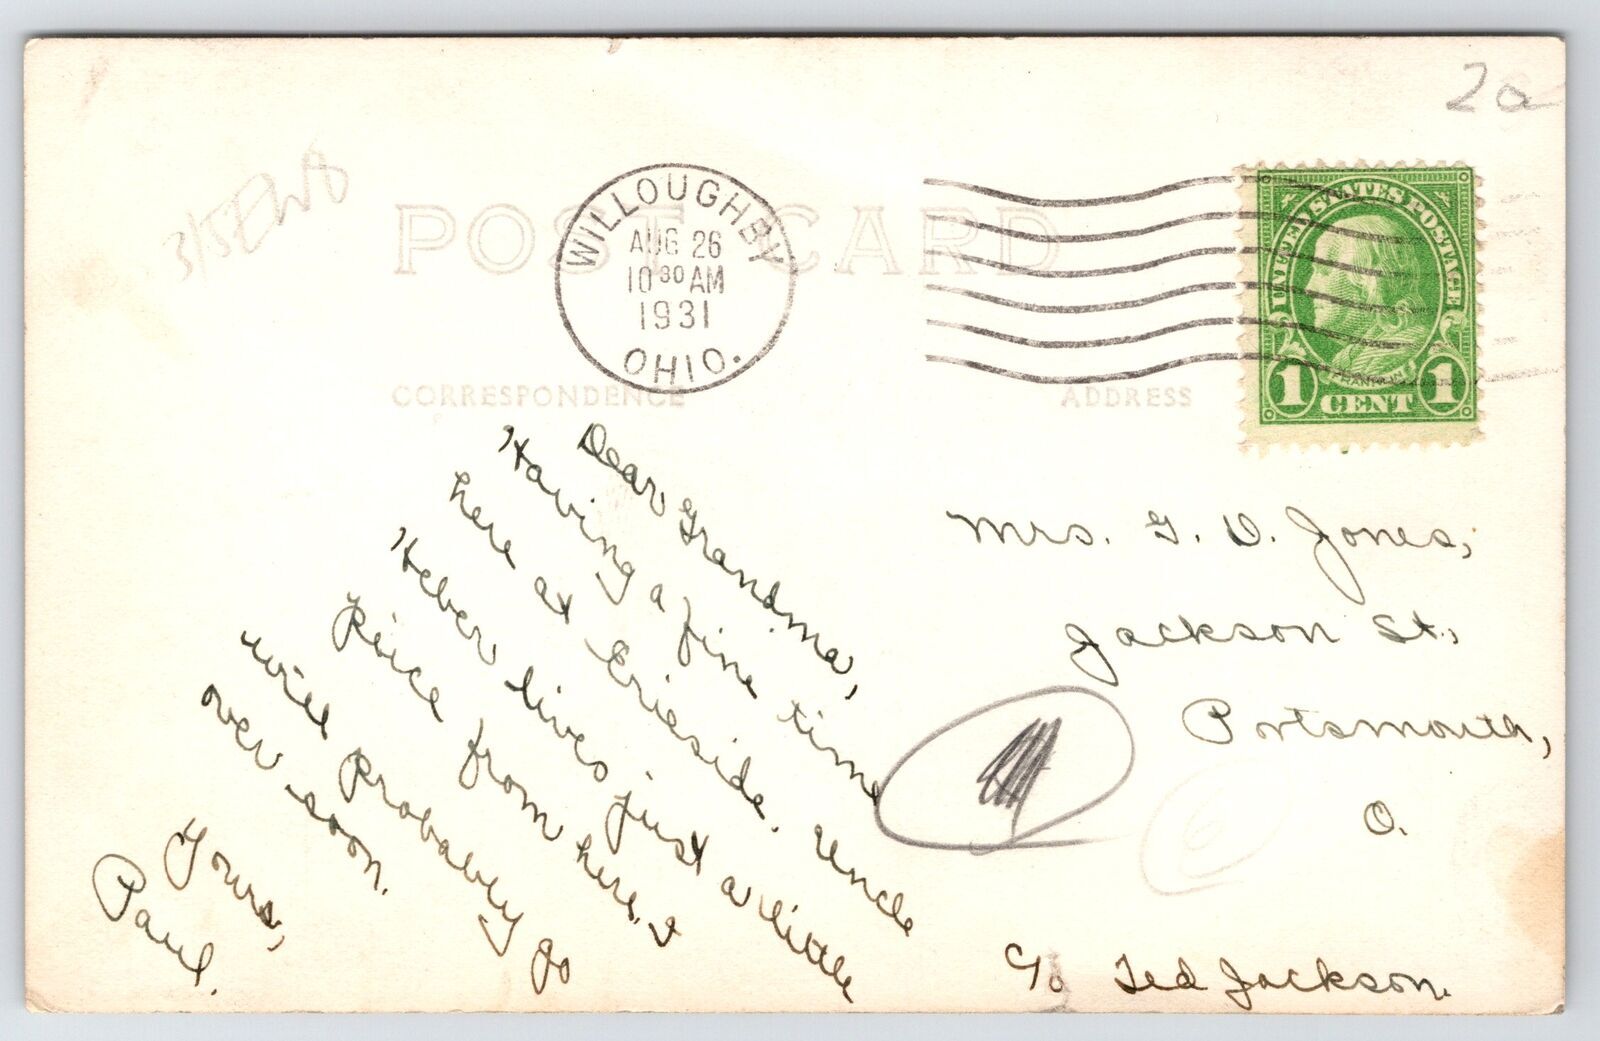 2a
WILLOUGHBY
AUG 26
10 30 AM
1931
OHIO.
POST CARD
CORRESPONDENCE
ADDRESS
UNITED STATES POSTAGE
FRANKLIN
1 CENT 1
Dear Grandma,
Having a fine time
here at Erieside. Uncle
Heber lives just a little
piece from here, &
will probably go
over soon.
Yours,
Paul.
Mrs. G. D. Jones,
Jackson St.,
Portsmouth,
O.
c/o Ted Jackson.